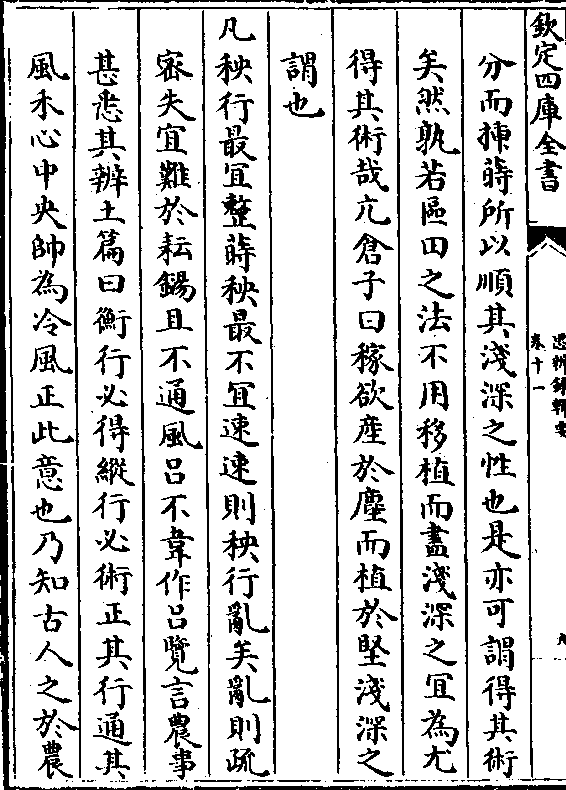 欽定四庫全書
思辨録輯要
卷十一
九
分而揀蒔所以順其淺深之性也是亦可謂得其術
矣然孰若區田之法不用移植而盡淺深之宜為尤
得其術哉亢倉子曰稼欲產於塵而植於堅淺深之
謂也
凡秧行最宜整蒔秧最不宜速速則秧行亂矣亂則疏
密失宜難於耘鍚且不通風吕不韋作吕覽言農事
甚悉其辨土篇曰衡行必得縱行必術正其行通其
風禾心中央帥為冷風正此意也乃知古人之於農